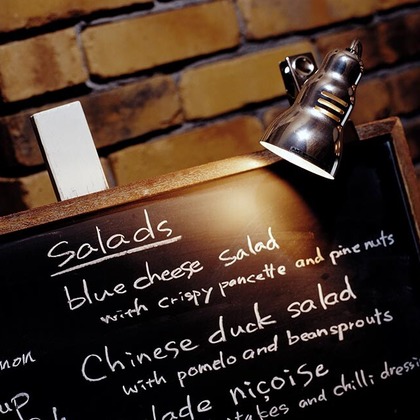 Salads
blue cheese salad
with crispy pancette and pine nuts
Chinese duck salad
with pomelo and beansprouts
niçoise
and chilli